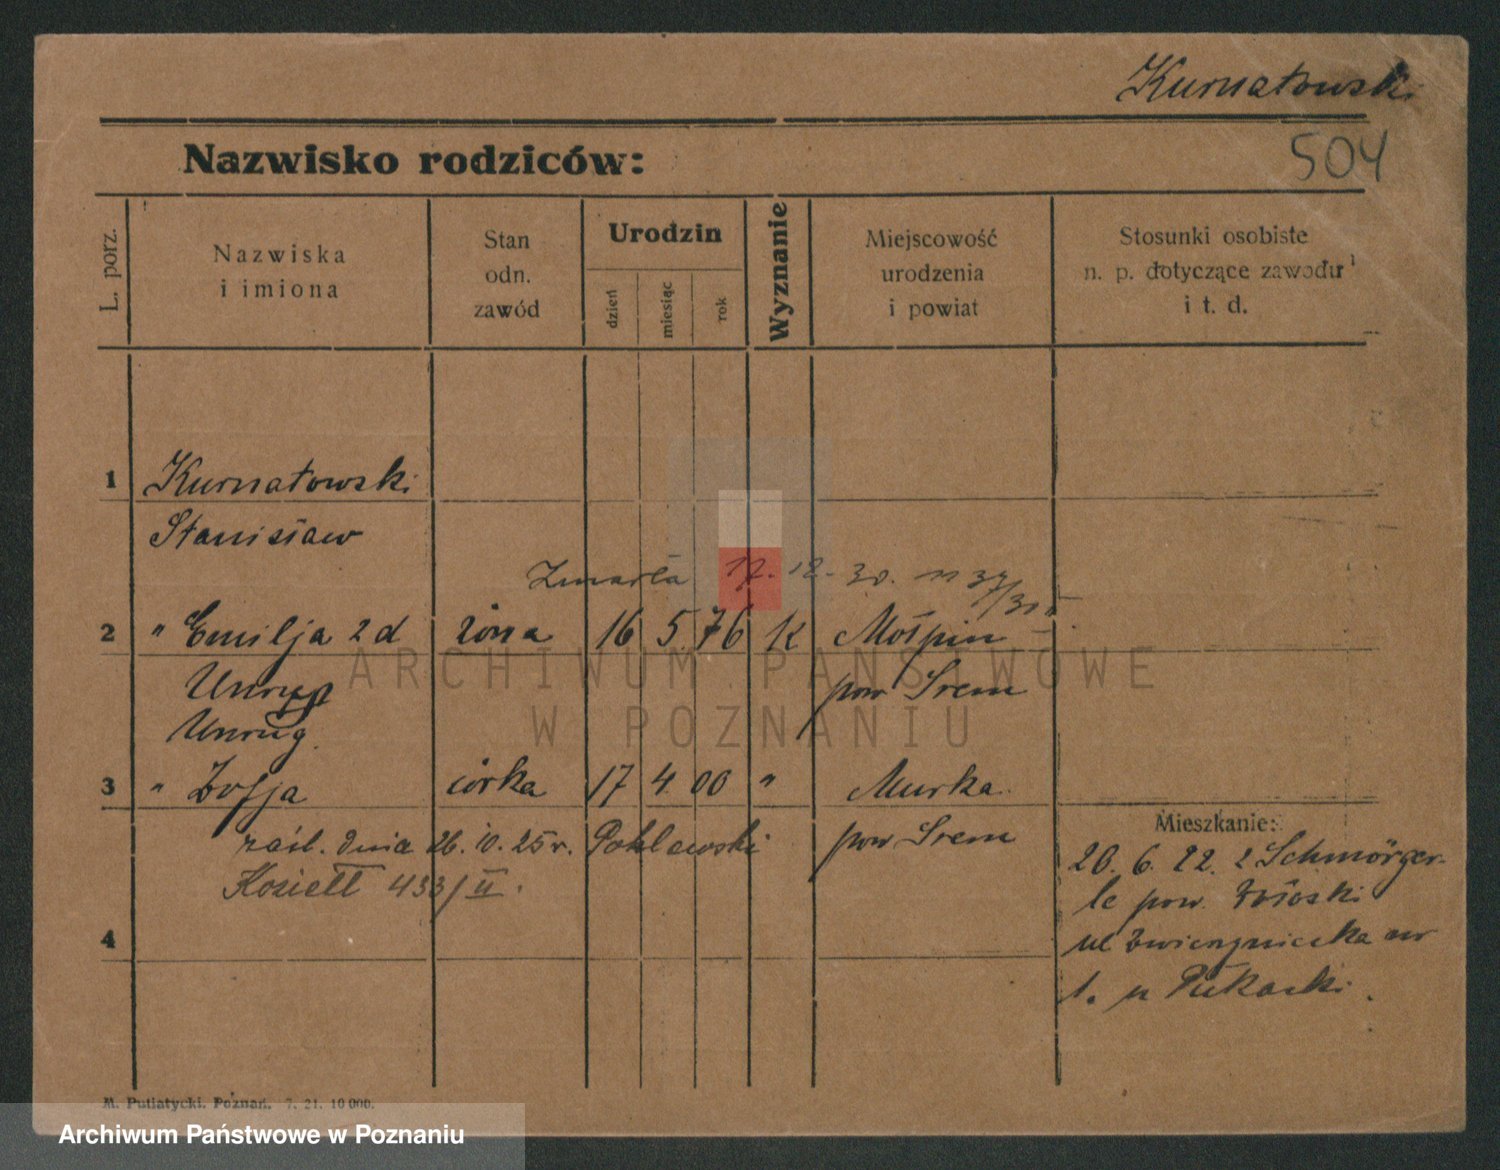 Kurnatowski
504
Nazwisko rodziców:
L. porz.
Nazwiska
i imiona
Stan
odn.
zawód
Urodzin
dzień
miesiąc
rok
Wyznanie
Miejscowość
urodzenia
i powiat
Stosunki osobiste
n. p. dotyczące zawodu
i t. d.
1 Kurnatowski
Stanisław
Zmarła 17. 12. 30. 37/31
2 " Emilja z d żona 16 5 76 K
Unrug pow Śrem
Unrug
3 " Zofja córka 17 4 00 " Murka
zaśl. dnia 26. 10. 25 r. Poklewski pow Śrem
Koziełł 433/II.
4
Mieszkanie:
20. 6. 22. z
pow.
ul Zwierzyniecka nr
1. u
ARCHIWUM PAŃSTWOWE
W POZNANIU
M. Putiatycki. Poznań. 7. 21. 10 000.
Archiwum Państwowe w Poznaniu